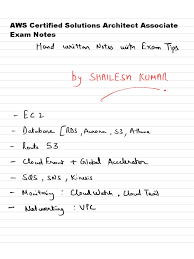 AWS Certified Solutions Architect Associate
Exam Notes
Hand written Notes with Exam Tips
by SHAILESH KUMAR
- EC2
- Database [RDS, Aurora, S3, Athena
- Route 53
- Cloud Front + Global Accelerator
- SQS, SNS, Kinesis
- Monitoring : Cloud Watch, Cloud Trail
- Networking : VPC